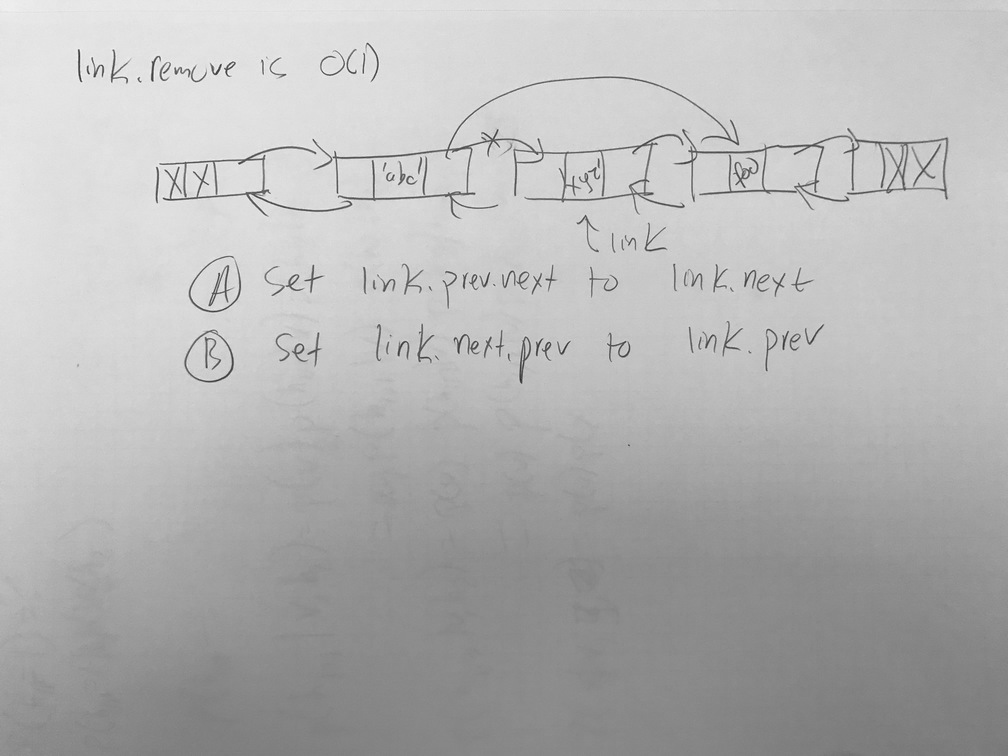 link.remove is O(1)
X X 'abc' 'xyz' foo X X
↑ link
A set link.prev.next to link.next
B set link.next.prev to link.prev